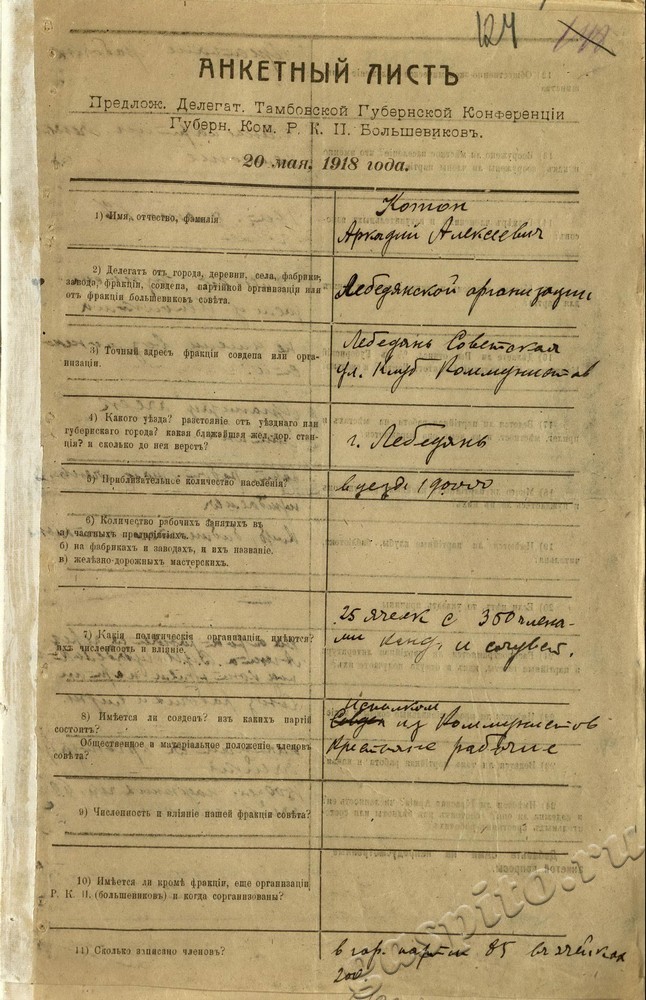 124
АНКЕТНЫЙ ЛИСТЪ
Предлож. Делегат. Тамбовской Губернской Конференціи
Губерн. Ком. Р. К. П. Большевиковъ.
20 мая, 1918 года.
1) Имя, отчество, фамилія
Котон
Аркадий Алексеевич
2) Делегатъ отъ города, деревни, села, фабрики,
завода, фракціи, совдепа, партійной организаціи или
отъ фракціи большевиковъ совѣта.
Лебедянской организации
3) Точный адресъ фракціи совдепа или орга-
низаціи.
Лебедянь Советская
ул. Клуб Коммунистов
4) Какого уѣзда? разстояніе отъ уѣзднаго или
губернскаго города? какая ближайшая жел.-дор. стан-
ція? и сколько до нея верстъ?
г. Лебедянь
5) Приблизательное количество населенія?
в уезде 190000
6) Количество рабочихъ занятыхъ въ
а) частныхъ предпріятіяхъ.
б) на фабрикахъ и заводахъ, и ихъ названіе.
в) желѣзно-дорожныхъ мастерскихъ.
7) Какія политическія организаціи имѣются?
ихъ численность и вліяніе.
25 ячеек с 360 члена-
ми канд. и сочувст.
8) Имѣется ли совдепъ? изъ какихъ партій
состоитъ?
Общественное и матеріальное положеніе членовъ
совѣта?
Исполком
Совдеп из Коммунистов
Крестьяне рабочие
9) Численность и вліяніе нашей фракціи совѣта?
10) Имѣется ли кромѣ фракціи, еще организація
Р. К. П. (большевиковъ) и когда сорганизованы?
11) Сколько записано членовъ?
в гор. партии 85 в ячейках
200.
guspito.ru